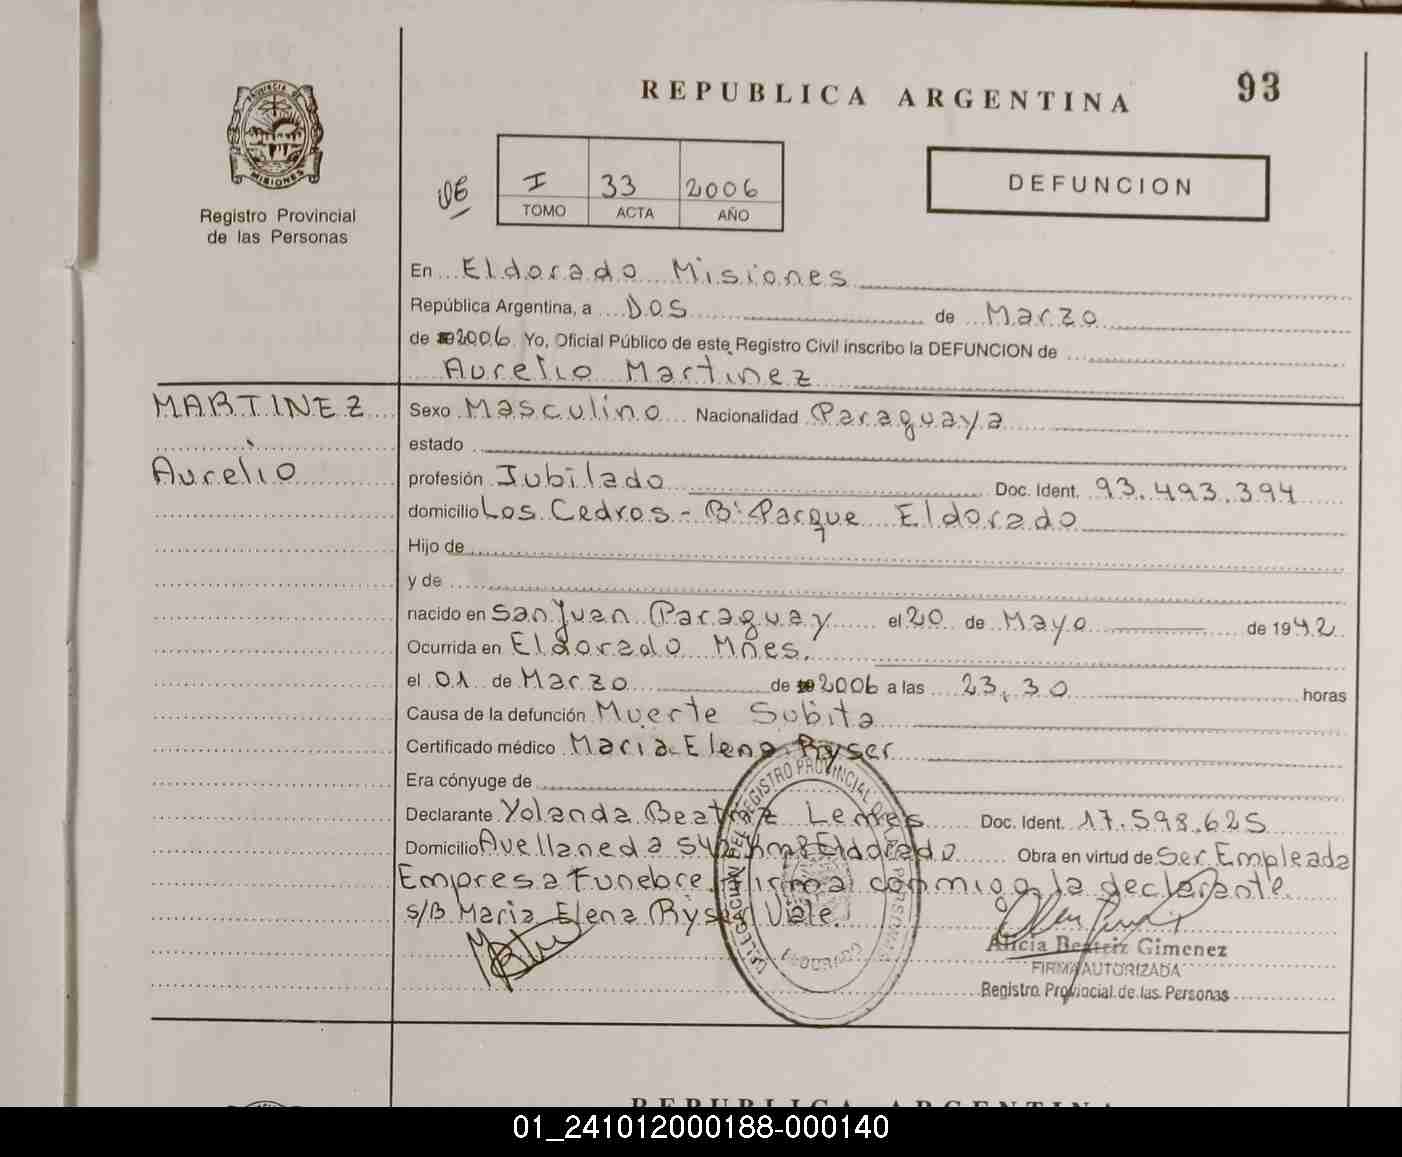 REPUBLICA ARGENTINA
93
PROVINCIA DE
MISIONES
Registro Provincial
de las Personas
I 33 2006
TOMO ACTA AÑO
DEFUNCION
En Eldorado Misiones
República Argentina, a Dos de Marzo
de 2006 Yo, Oficial Público de este Registro Civil inscribo la DEFUNCION de
Aurelio Martinez
MARTINEZ
Aurelio
Sexo Masculino Nacionalidad Paraguaya
estado
profesión Jubilado Doc. Ident. 93.493.394
domicilio Los Cedros - Bº Parque Eldorado
Hijo de
y de
nacido en San Juan Paraguay el 20 de Mayo de 1942
Ocurrida en Eldorado Mnes.
el 01 de Marzo de 2006 a las 23,30 horas
Causa de la defunción Muerte Subita
Certificado médico Maria Elena Ryser
Era cónyuge de
Declarante Yolanda Beatriz Lemes Doc. Ident. 17.598.625
Domicilio Avellaneda Eldorado Obra en virtud de Ser Empleada
Empresa Funebre. Firma conmigo la declarante.
s/B Maria Elena Ryser Vale.
DELEGACION DEL REGISTRO PROVINCIAL DE LAS PERSONAS
ELDORADO
Alicia Beatriz Gimenez
FIRMA AUTORIZADA
Registro Provincial de las Personas
REPUBLICA ARGENTINA
01_241012000188-000140